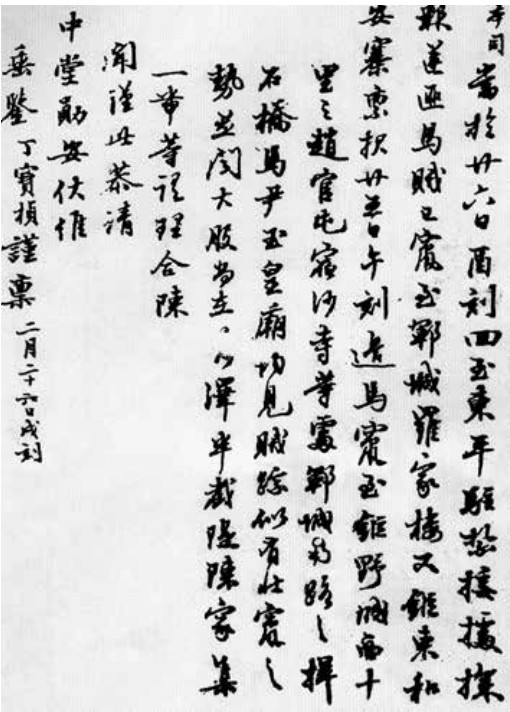 本司當於廿六日酉刻回至東平駐紮接據探
縣遞馬賊已竄至鄆城羅家樓又鉅東和
安寨稟報廿日午刻邊馬竄至鉅野城西十
里之趙官屯宿沙寺等處鄆城之揮
石橋馬尹玉皇廟均見賊蹤似有北竄之
勢並聞大股尚在澤半截隄陳家集
一帶等語理合陳
聞謹此恭請
中堂勛安伏惟
垂鑒丁寶楨謹稟二月二十六日戌刻